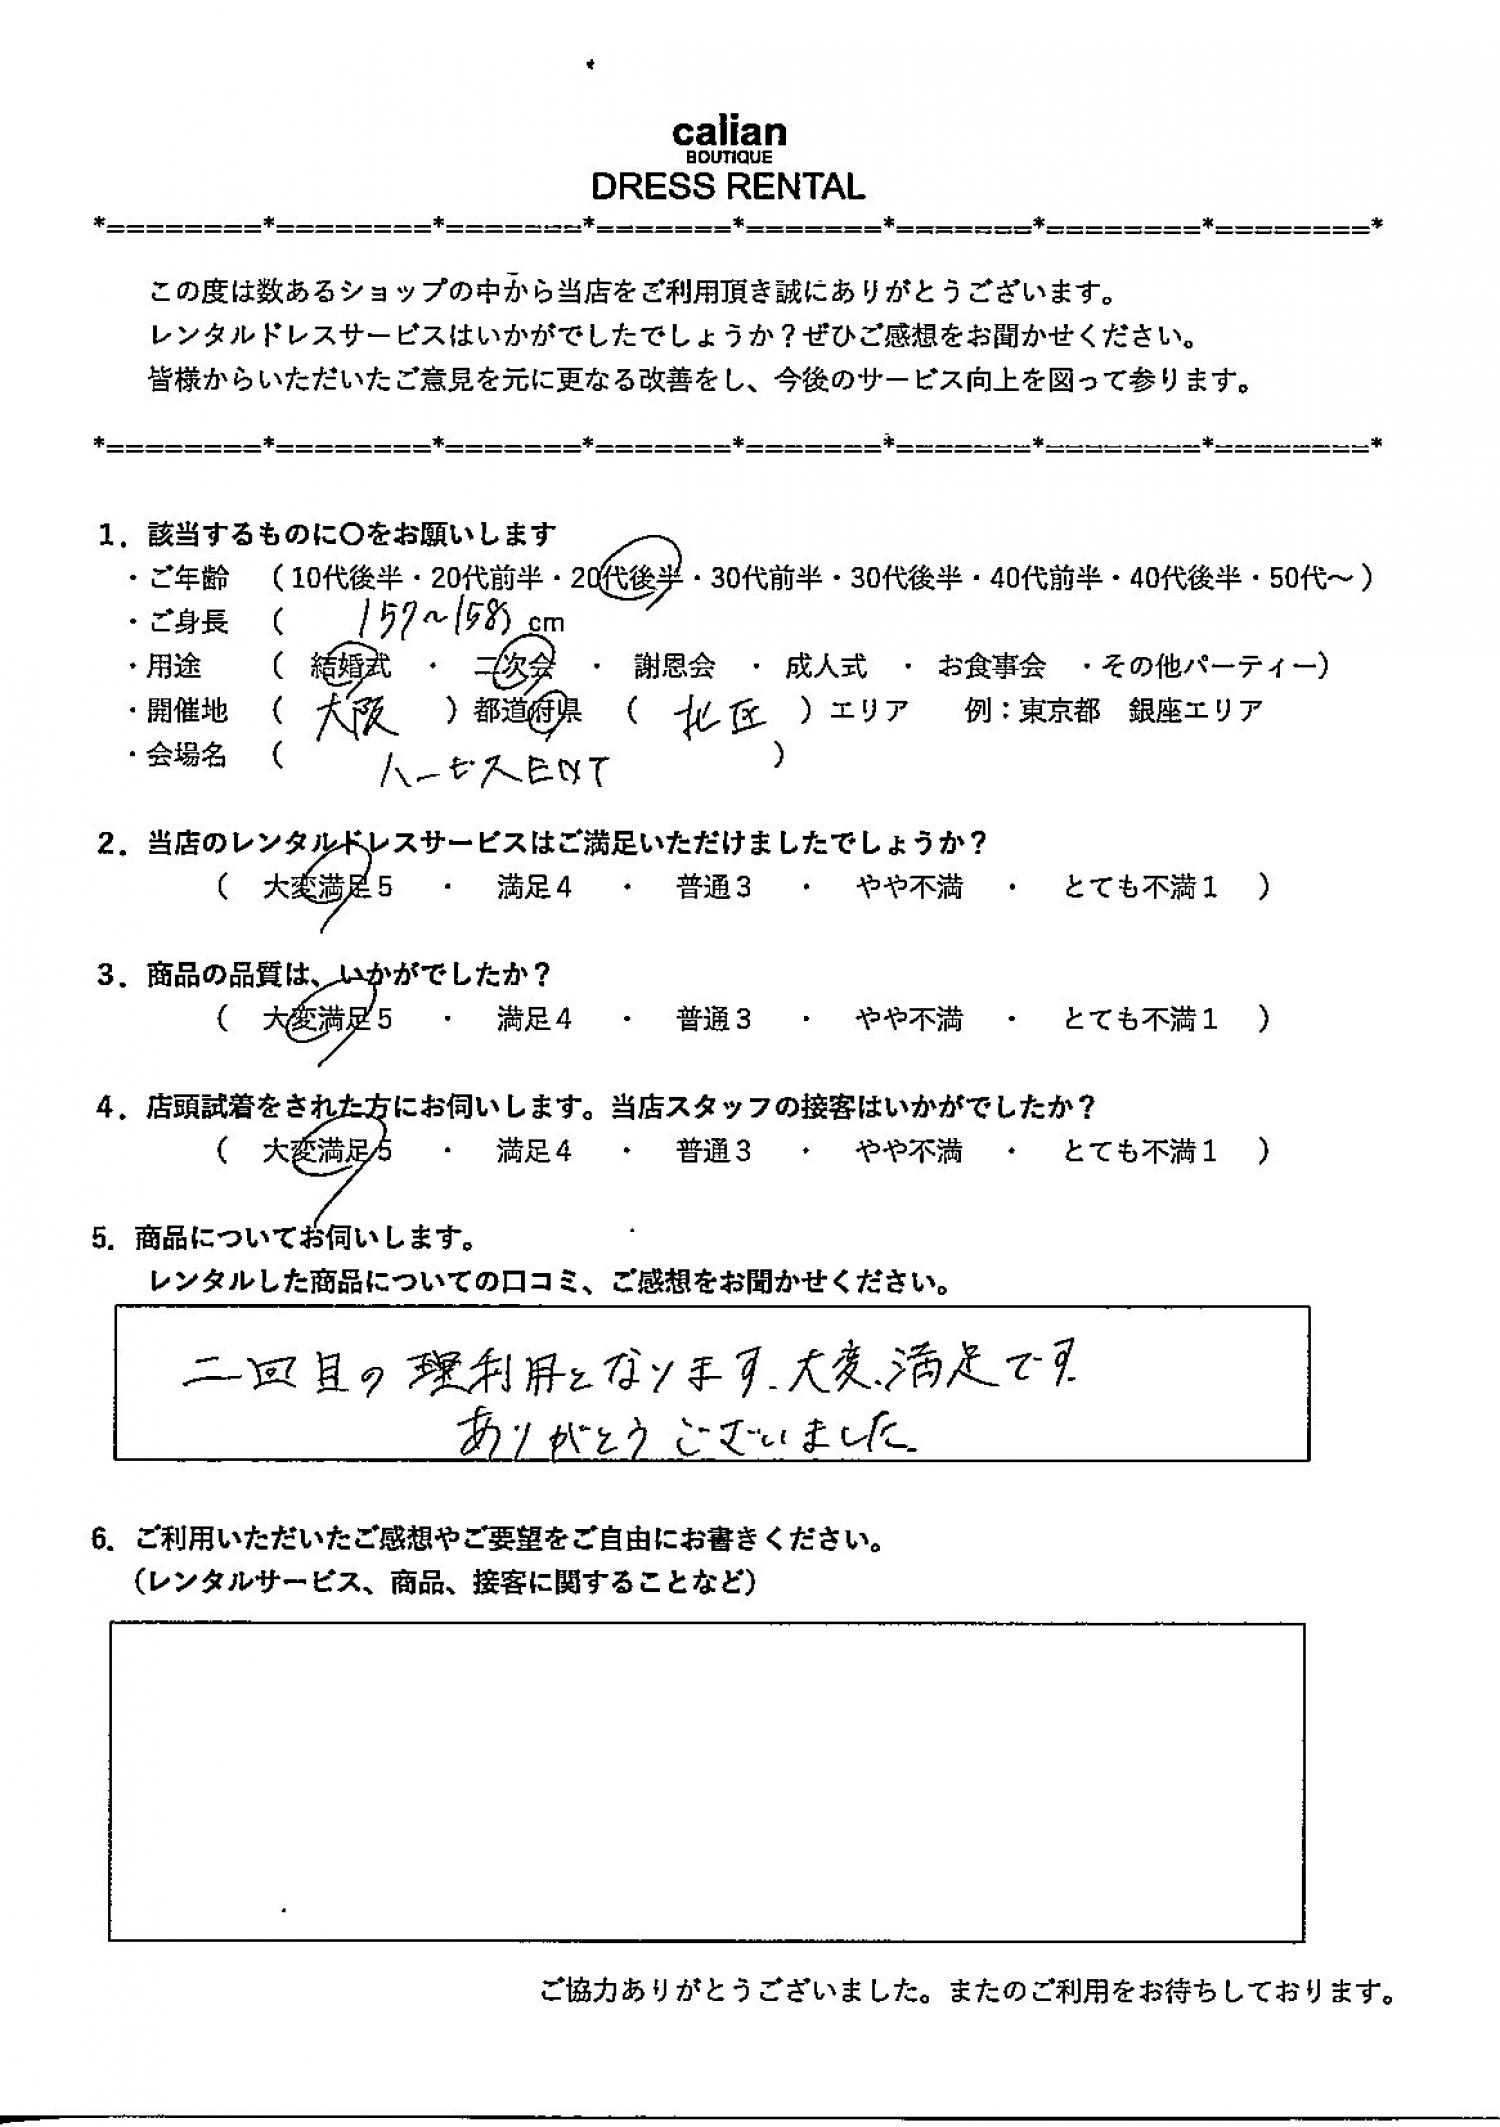 calian
BOUTIQUE
DRESS RENTAL
*========*========*=======*=======*=======*=======*========*========*
この度は数あるショップの中から当店をご利用頂き誠にありがとうございます。
レンタルドレスサービスはいかがでしたでしょうか？ぜひご感想をお聞かせください。
皆様からいただいたご意見を元に更なる改善をし、今後のサービス向上を図って参ります。
*========*========*=======*=======*=======*=======*========*========*
1．該当するものに〇をお願いします
・ご年齢 （10代後半・20代前半・20代後半・30代前半・30代後半・40代前半・40代後半・50代～）
・ご身長 （ 157～158） cm
・用途 （ 結婚式 ・ 二次会 ・ 謝恩会 ・ 成人式 ・ お食事会 ・その他パーティー）
・開催地 （ 大阪 ）都道府県 （ 北区 ）エリア 例：東京都 銀座エリア
・会場名 （ ハービスENT ）
2．当店のレンタルドレスサービスはご満足いただけましたでしょうか？
（ 大変満足5 ・ 満足4 ・ 普通3 ・ やや不満 ・ とても不満1 ）
3．商品の品質は、いかがでしたか？
（ 大変満足5 ・ 満足4 ・ 普通3 ・ やや不満 ・ とても不満1 ）
4．店頭試着をされた方にお伺いします。当店スタッフの接客はいかがでしたか？
（ 大変満足5 ・ 満足4 ・ 普通3 ・ やや不満 ・ とても不満1 ）
5．商品についてお伺いします。
レンタルした商品についての口コミ、ご感想をお聞かせください。
二回目の利用となります。大変、満足です。
ありがとうございました。
6．ご利用いただいたご感想やご要望をご自由にお書きください。
（レンタルサービス、商品、接客に関することなど）
ご協力ありがとうございました。またのご利用をお待ちしております。